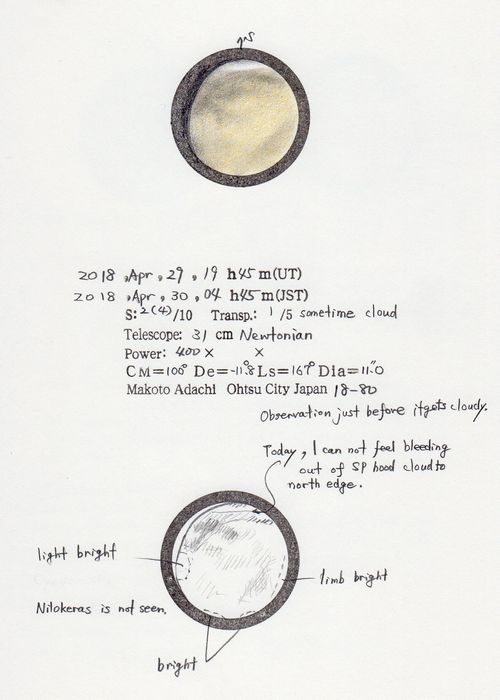 S
2018 ,Apr , 29 , 19 h45 m(UT)
2018 ,Apr , 30 , 04 h45 m(JST)
S: 2(4)/10 Transp.: 1 /5 sometime cloud
Telescope: 31 cm Newtonian
Power: 400 × ×
CM=100° De=-11.8° Ls=167° Dia=11.0"
Makoto Adachi Ohtsu City Japan 18-80
Observation just before it gets cloudy.
Today, I can not feel bleeding
out of SP hood cloud to
north edge.
light bright
limb bright
Nilokeras is not seen.
bright